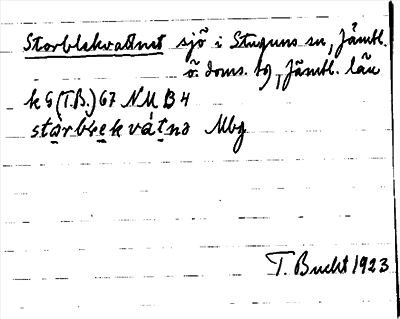 Storblekvattnet sjö i Stuguns sn, Jämtl.
ö. doms. tg, Jämtl. län
k G (T.B.) 67 NU B 4
starbḷekvátnə Mbg
T. Bucht 1923